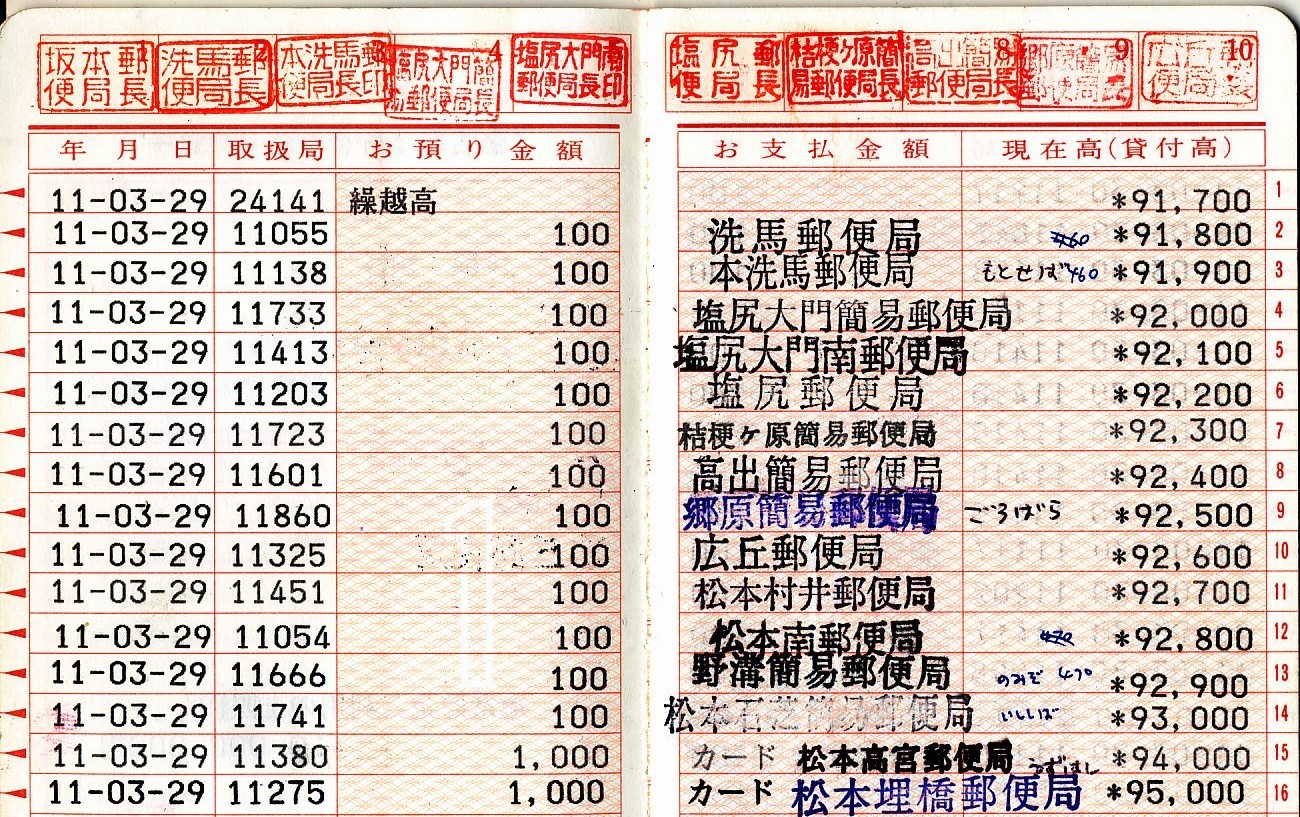 坂本郵便局長 洗馬郵便局長 本洗馬郵便局長印 4 塩尻大門簡易郵便局長 塩尻大門南郵便局長印 塩尻郵便局長 桔梗ヶ原簡易郵便局長 8 高出簡易郵便局長 9 郷原簡易郵便局長 10 広丘郵便局長
年月日 取扱局 お預り金額 お支払金額 現在高(貸付高)
11-03-29 24141 繰越高 *91,700 1
11-03-29 11055 100 洗馬郵便局 *91,800 2
11-03-29 11138 100 本洗馬郵便局 もとせば 460 *91,900 3
11-03-29 11733 100 塩尻大門簡易郵便局 *92,000 4
11-03-29 11413 100 塩尻大門南郵便局 *92,100 5
11-03-29 11203 100 塩尻郵便局 *92,200 6
11-03-29 11723 100 桔梗ヶ原簡易郵便局 *92,300 7
11-03-29 11601 100 高出簡易郵便局 *92,400 8
11-03-29 11860 100 郷原簡易郵便局 ごうばら *92,500 9
11-03-29 11325 100 広丘郵便局 *92,600 10
11-03-29 11451 100 松本村井郵便局 *92,700 11
11-03-29 11054 100 松本南郵便局 *92,800 12
11-03-29 11666 100 野溝簡易郵便局 のみぞ 470 *92,900 13
11-03-29 11741 100 松本石芝簡易郵便局 いししば *93,000 14
11-03-29 11380 1,000 カード 松本高宮郵便局 *94,000 15
11-03-29 11275 1,000 カード 松本埋橋郵便局 うずはし *95,000 16